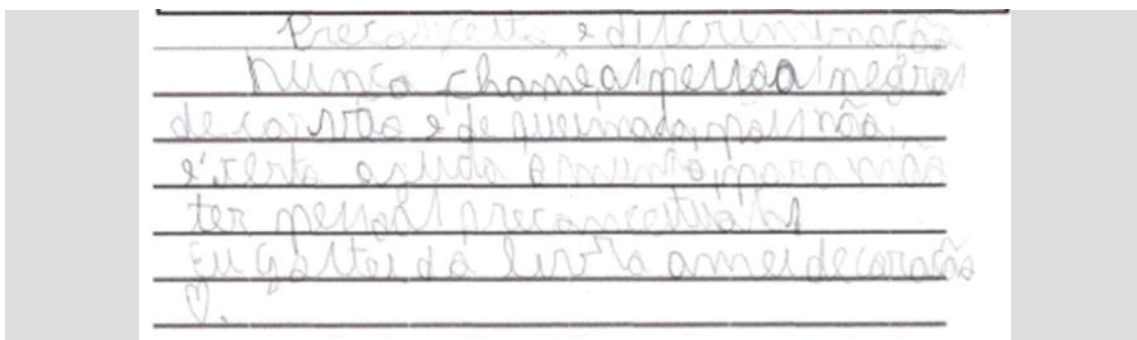 Preconceito e discriminação
Nunca chame as pessoas negras
de carvão e de queimada, pois não
é certo ajuda o mundo, para não
ter pessoas preconceituosas
Eu gostei do livro amei de coração
♡.